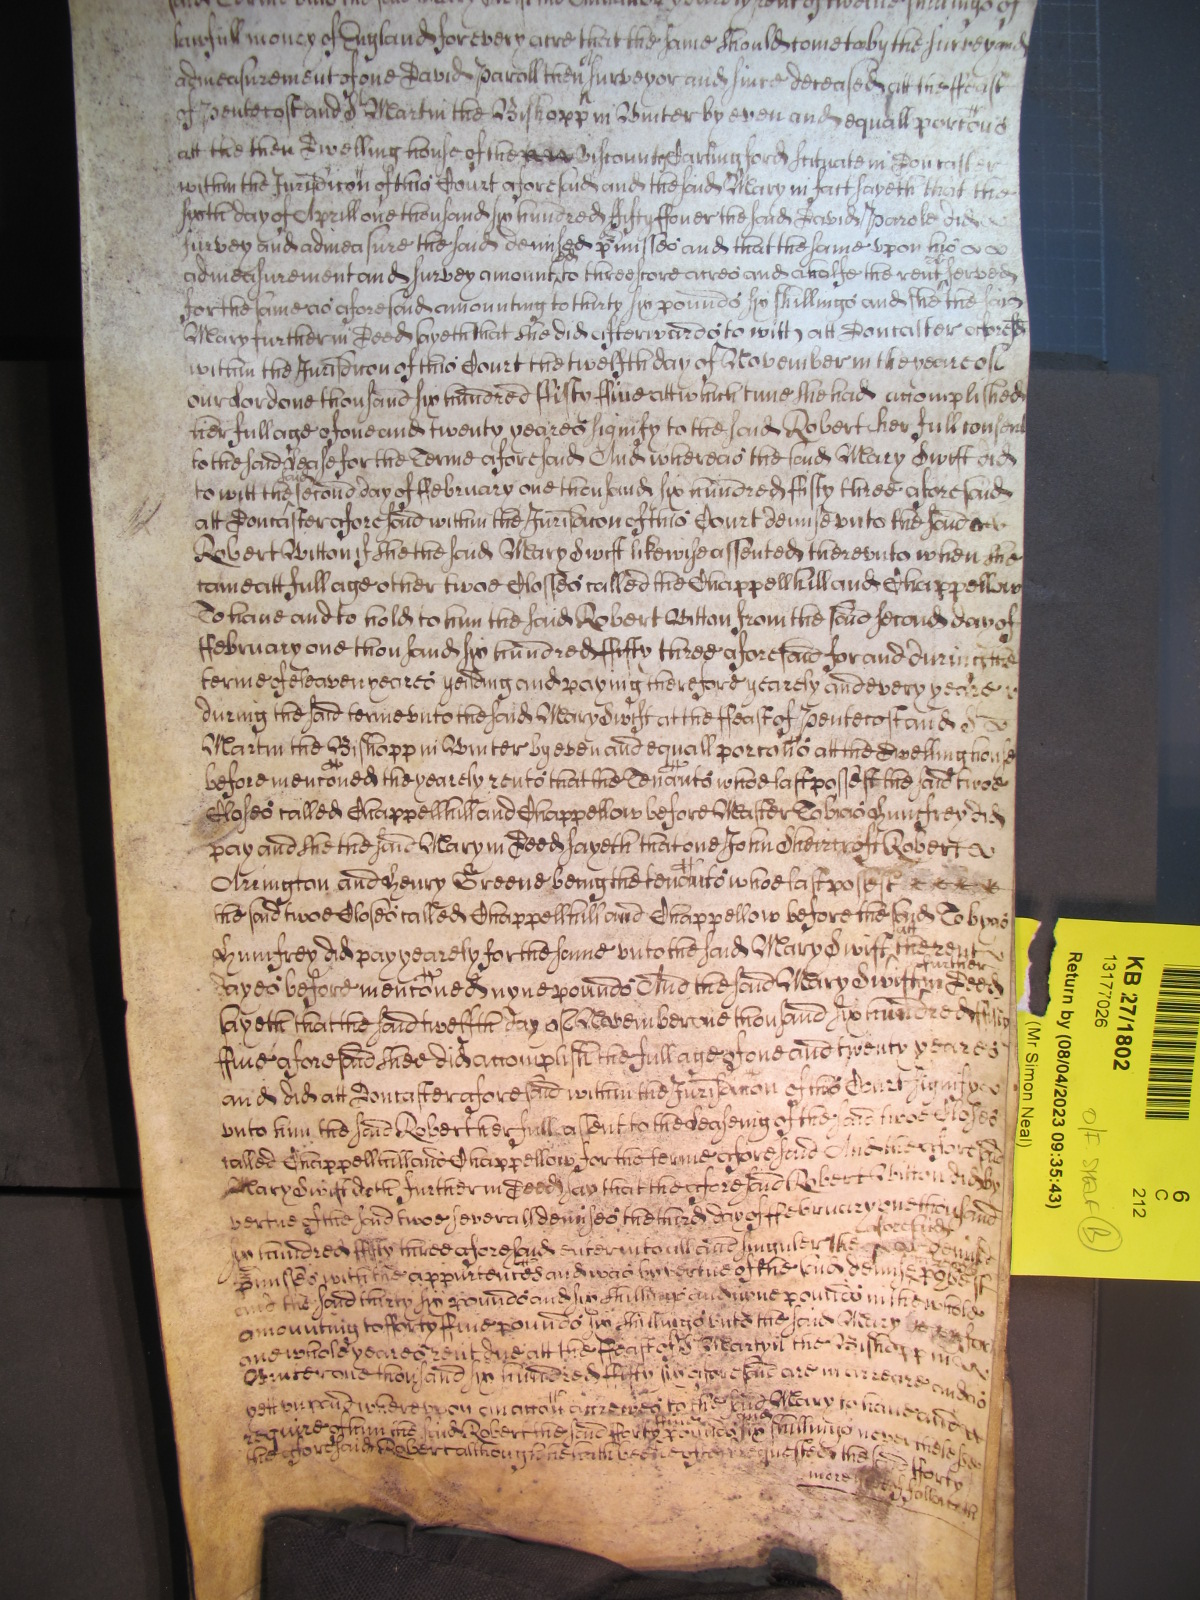 lawfull money of England for every acre that the same should come to by the survey and
admeasurement of one David Paroll then surveyor and since deceased att the ffeast
of Pentecost and St Martin the Bishopp in Winter by even and equall porcons
att the then Dwelling house of the Viscount Carlingford scituate in Doncaster
within the Jurisdiccon of this Court aforesaid and the said Mary in fact sayeth that the
sixth day of Aprill one thousand six hundred fifty ffower the said David Parole did
survey and admeasure the said demised pmisses and that the same upon his
admeasurement and survey amounted to threescore acres and a halfe the rent reserved
for the same as aforesaid amounting to thirty six pounds six shillings and she the said
Mary further in Deed sayeth that she did afterwards to witt att Doncaster aforesd
within the Jurisdiccon of this Court the twelfth day of November in the yeare of
our Lord one thousand six hundred ffifty ffive att which time she had accomplished
her full age of one and twenty yeares signify to the said Robert her full consent
to the said Lease for the Terme aforesaid And whereas the said Mary Swift did
to witt the said second day of ffebruary one thousand six hundred ffifty three aforesaid
att Doncaster aforesaid within the Jurisdiccon of this Court demise unto the said
Robert Witton if she the said Mary Swift likewise assented thereunto when she
came att full age other twoe Closes called the Chappellhill and Chappellow
To have and to hold to him the said Robert Witton from the said second day of
ffebruary one thousand six hundred ffifty three aforesaid for and during the
terme of eleaven yeares yeilding and paying therefore yearely and every yeare
during the said terme unto the said Mary Swift at the ffeast of Pentecost and St
Martin the Bishopp in Winter by even and equall porcons att the Dwelling house
before menconed the yearely rents that the Tenants whoe last possest the said twoe
Closes called Chappellhill and Chappellow before Master Tobias Humfrey did
pay and she the said Mary in Deed sayeth that one John Robert
Arrington and Henry Greene being the tenants whoe last possest
the said twoe Closes called Chappellhill and Chappellow before the said Tobyas
Humfrey did pay yearely for the same unto the said Mary Swift att the rent
dayes before menconed nyne pounds And the said Mary Swift further in Deed
sayeth that the said twelfth day of November one thousand six hundred ffifty
ffive aforesaid shee did accomplish the full age of one and twenty yeares
and did att Doncaster aforesaid within the Jurisdiccon of this Court signifye
unto him the said Robert her full assent to the Leaseing of the said twoe Closes
called Chappellhill and Chappellow for the terme aforesaid And the aforesaid
Mary Swift doth further in Deed say that the aforesaid Robert Witton did by
vertue of the said twoe severall demises the third day of ffebruary one thousand
six hundred ffifty three aforesaid enter into all and singuler the aforesaid demised
pmisses with the appurtences and was by vertue of the said demise
and the said thirty six pounds and six shillings and nyne pounds in the whole
amounting to fforty ffive pounds six shillings unto the said Mary for
one whole yeares rent due att the ffeast of St Martyn the Bishopp in
Winter one thousand six hundred ffifty six aforesaid are in arreare and as
yett unpaid whereupon an accon accrewed to the said Mary to have and
require of him the said Robert the said fforty ffive pounds and six shillings neverthelesse
the aforesaid Robert although hee hath beene often requested the said fforty
more followeth
KB 27/1802
13177026
Return by (08/04/2023 09:35:43)
(Mr Simon Neal)
6
C
212
O/F
B